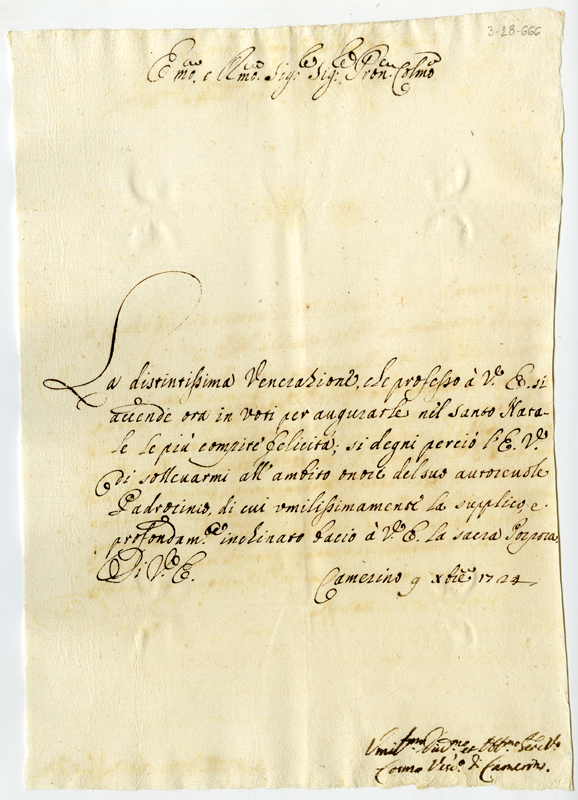 3-28-666
E.mo, e R.mo Sig.re Sig.re Pron. Colmo
La distintissima Venerazione, che professo à V.ra E. si
accende ora in voti per augurarle nel santo Nata-
le le più compite felicità; si degni perciò l'E. V.ra
di solleuarmi all'ambito onore del suo autoreuole
Padrocinio, di cui vmilissimamente la supplico, e
profondam.te inchinato bacio à V.ra E. la sacra Porpora
Di V.ra E.
Camerino 9 xbre 1724
Vmil.mo Diu.mo et Obb.mo Ser.e V.o
Cosmo Vesc.o di Camerino.